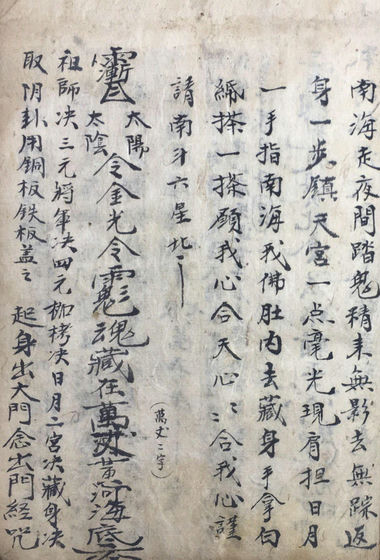 南海走夜間踏鬼精来無影去無踪返
身一步鎮天宮一点毫光現肩担日月
一手指南海我佛肚内去藏身手拿白
紙搽一搽願我心合天心〻合我心謹
請南斗六星北
太陽
太陰
令金光令魂藏在萬丈黄河海底
(萬丈二字)
祖師决三元將軍决四元枷栲决日月二宮决藏身决
取阴卦用銅板鉄板盖之 起身出大門念出門經咒